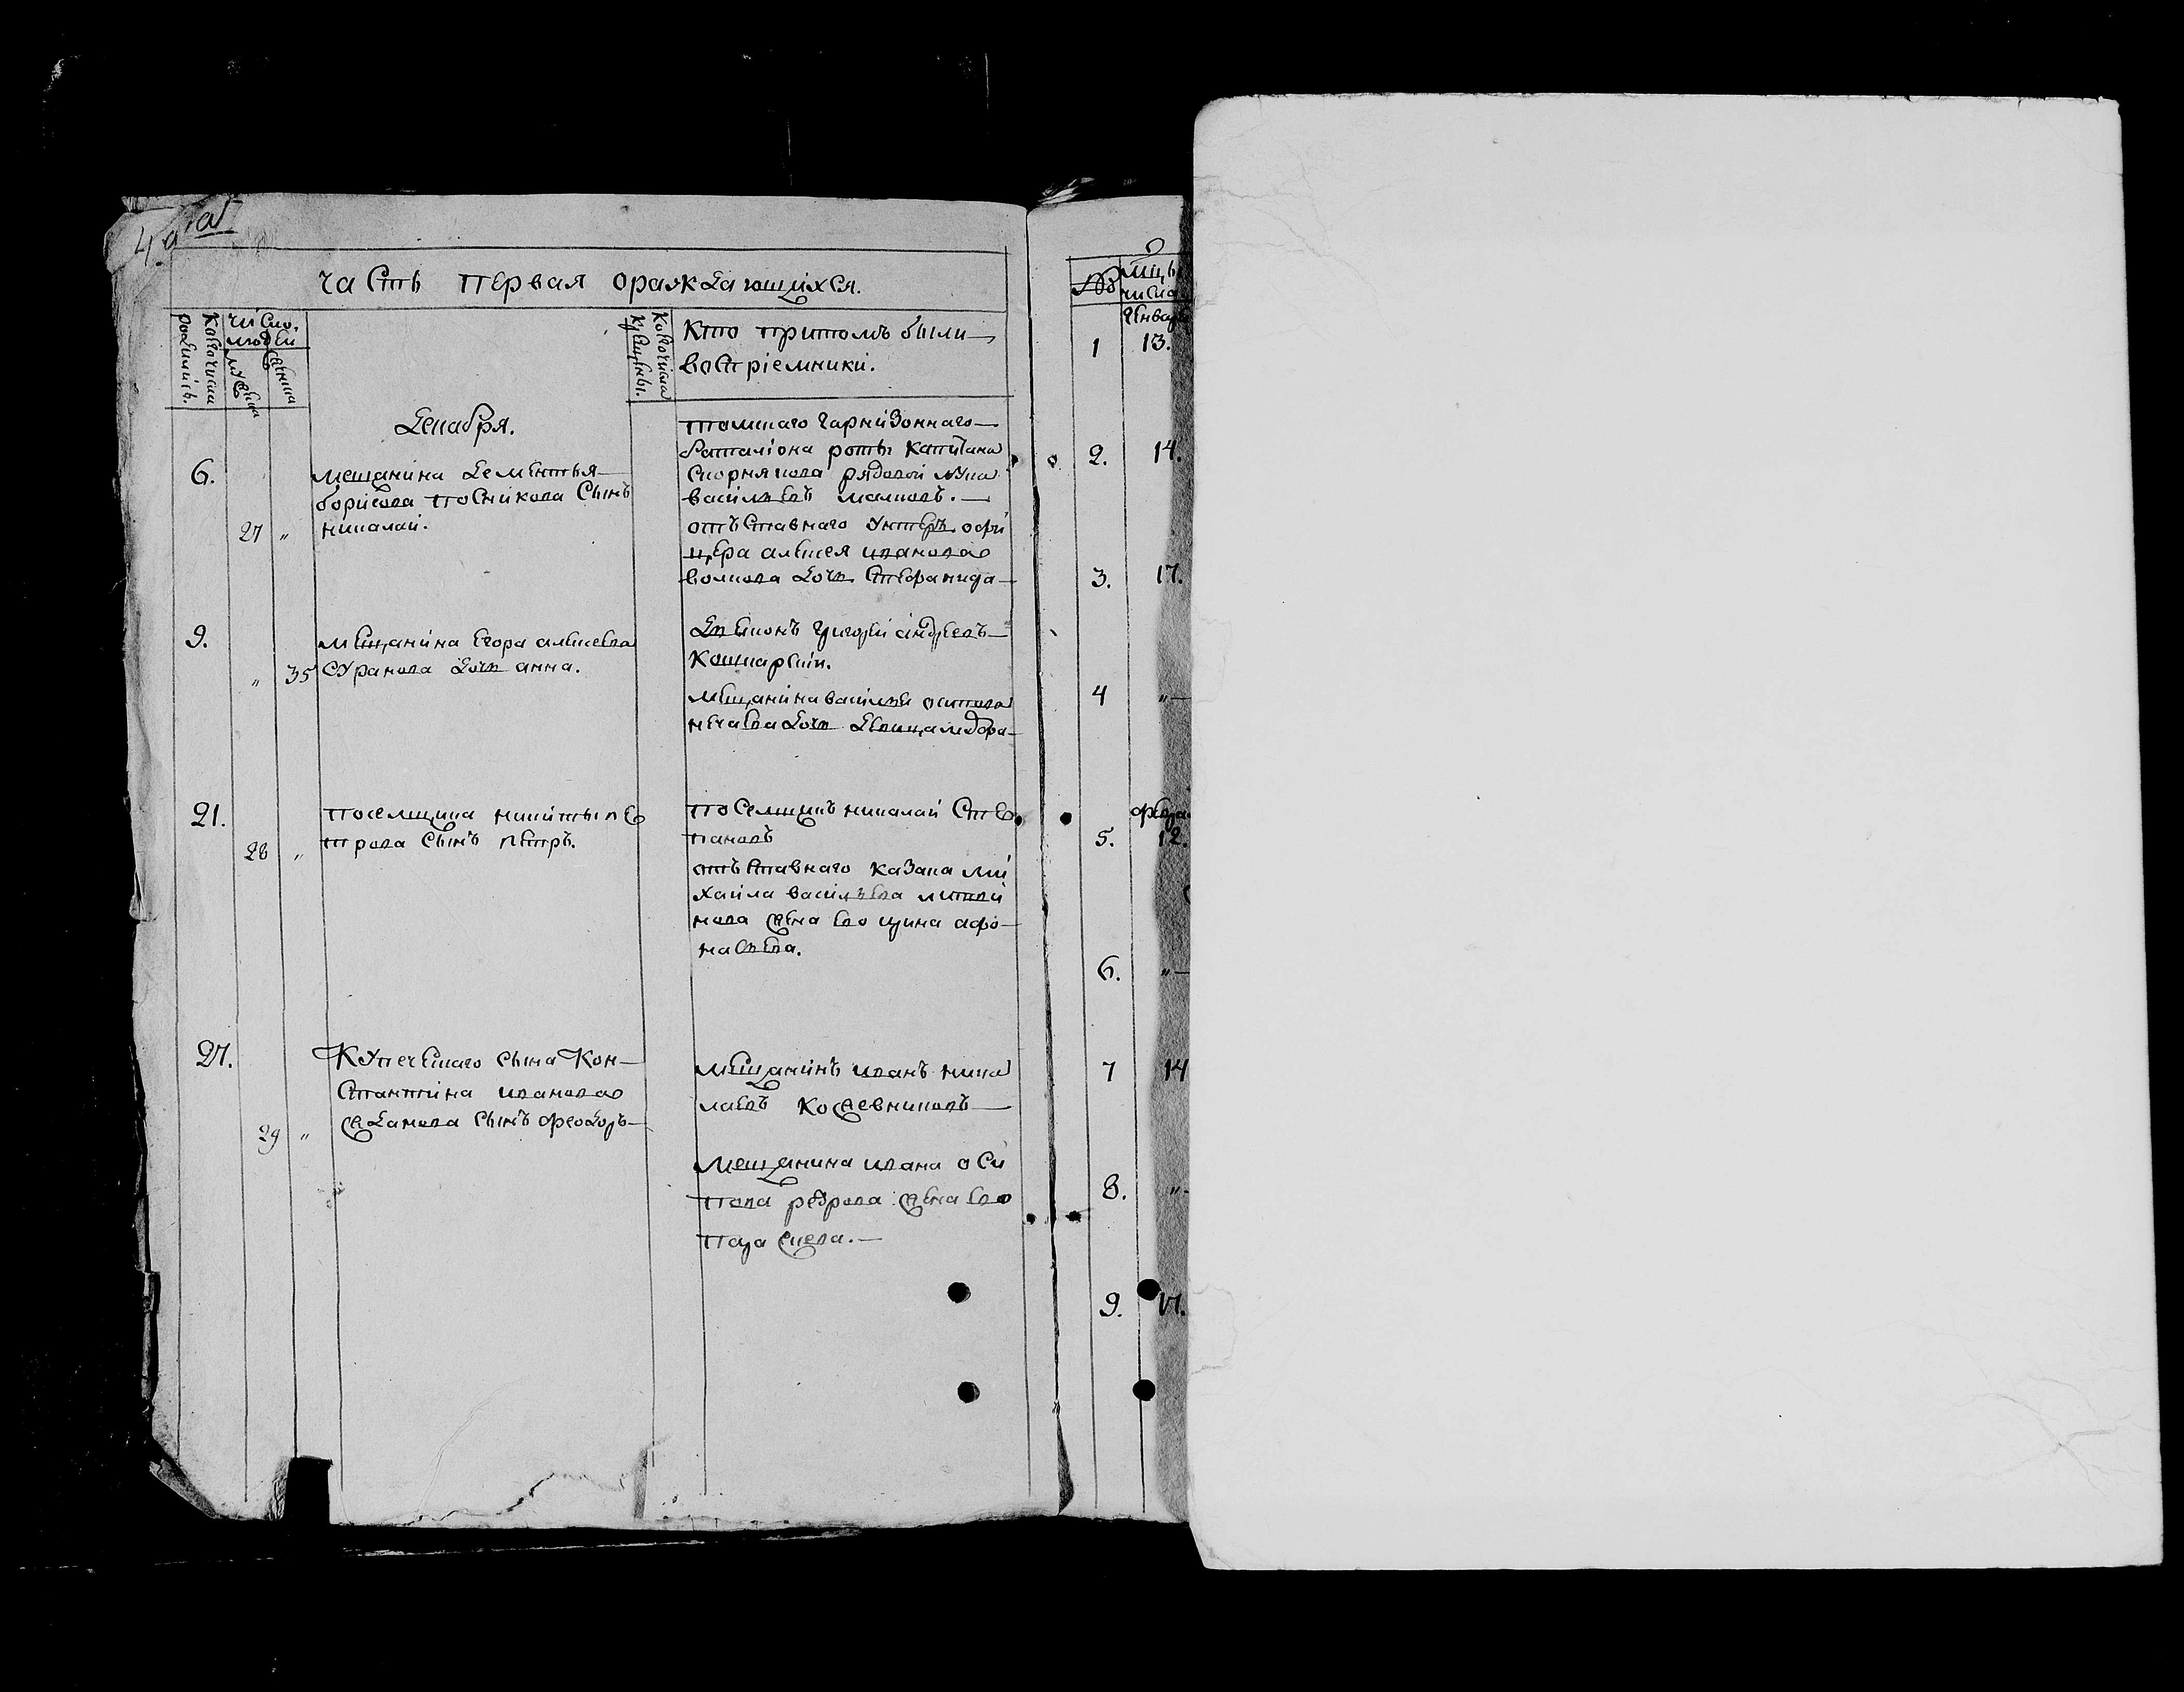 часть первая ораждающихся.
Коего числа
родились.
число.
людей
муска
женска
Коего числа
крещены.
Кто притомъ были
воспріемники.
Декабря.
6.
27 „
мещанина дементья
борисова посникова сынъ
николай.
томскаго гарнизоннаго
баталіона роты капитана
скорнякова рядовой лука
васильевъ малковъ.
отъставнаго унтеръ офи
цера алексея иванова
волкова дочь степанида
9.
„ 35
мещанина егора алексеева
суранова дочь анна.
дьяконъ григорей андреевъ
мещанина василья осипова
нечаева дочь
21.
28 „
поселщика никиты пе
трова сынъ петръ.
поселщикъ николай сте
пановъ
отъставнаго казака ми
хайла васильева
жена ево ирина афо
насьева.
27.
29 „
Купеческаго сына Кон
стантина иванова
жданова сынъ феодоръ
мещанинъ иванъ нико
лаевъ кожевниковъ
мещанина ивана оси
пова жена ево
№ мцъ
числа
Генваря
1 13.
2. 14.
3. 17.
4 „
февра
5. 12.
6. „
7 14
8. „
9. 17.